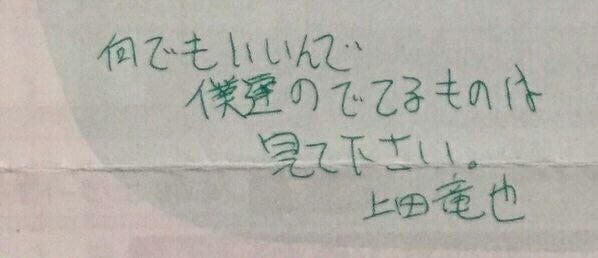 何でもいいんで
僕達のでてるものは
見て下さい。
上田竜也